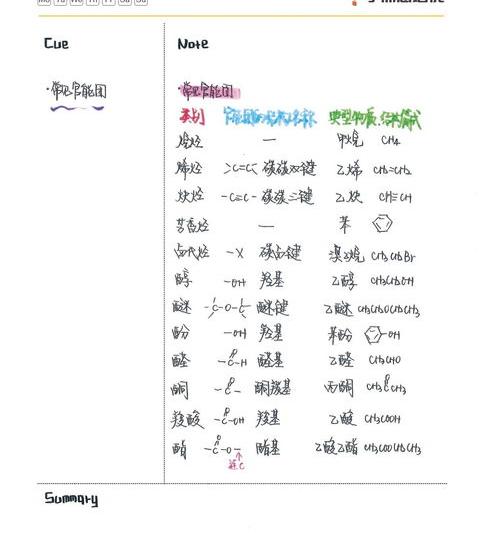 Mo Tu We Th Fr Sa Su
Cue
Note
·常见官能团
·常见官能团
类别 官能团的结构名称 典型物质.结构简式
烷烃 — 甲烷 CH₄
烯烃 >C=C< 碳碳双键 乙烯 CH₂=CH₂
炔烃 -C≡C- 碳碳三键 乙炔 CH≡CH
芳香烃 — 苯
卤代烃 -X 碳卤键 溴乙烷 CH₃CH₂Br
醇 -OH 羟基 乙醇 CH₃CH₂OH
醚 -C-O-C- 醚键 乙醚 CH₃CH₂OCH₂CH₃
酚 -OH 羟基 苯酚 -OH
醛 O -C-H 醛基 乙醛 CH₃CHO
酮 O -C- 酮羰基 丙酮 CH₃CCH₃ O
羧酸 O -C-OH 羧基 乙酸 CH₃COOH
酯 O -C-O- 酯基 乙酸乙酯 CH₃COOCH₂CH₃
连C
Summary